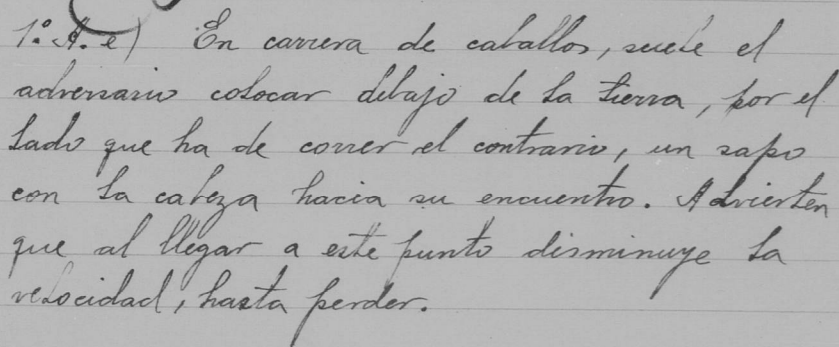 1.º A. e) En carrera de caballos, suele el
adversario colocar debajo de la tierra, por el
lado que ha de correr el contrario, un sapo
con la cabeza hacia su encuentro. Advierten
que al llegar a este punto disminuye la
velocidad, hasta perder.